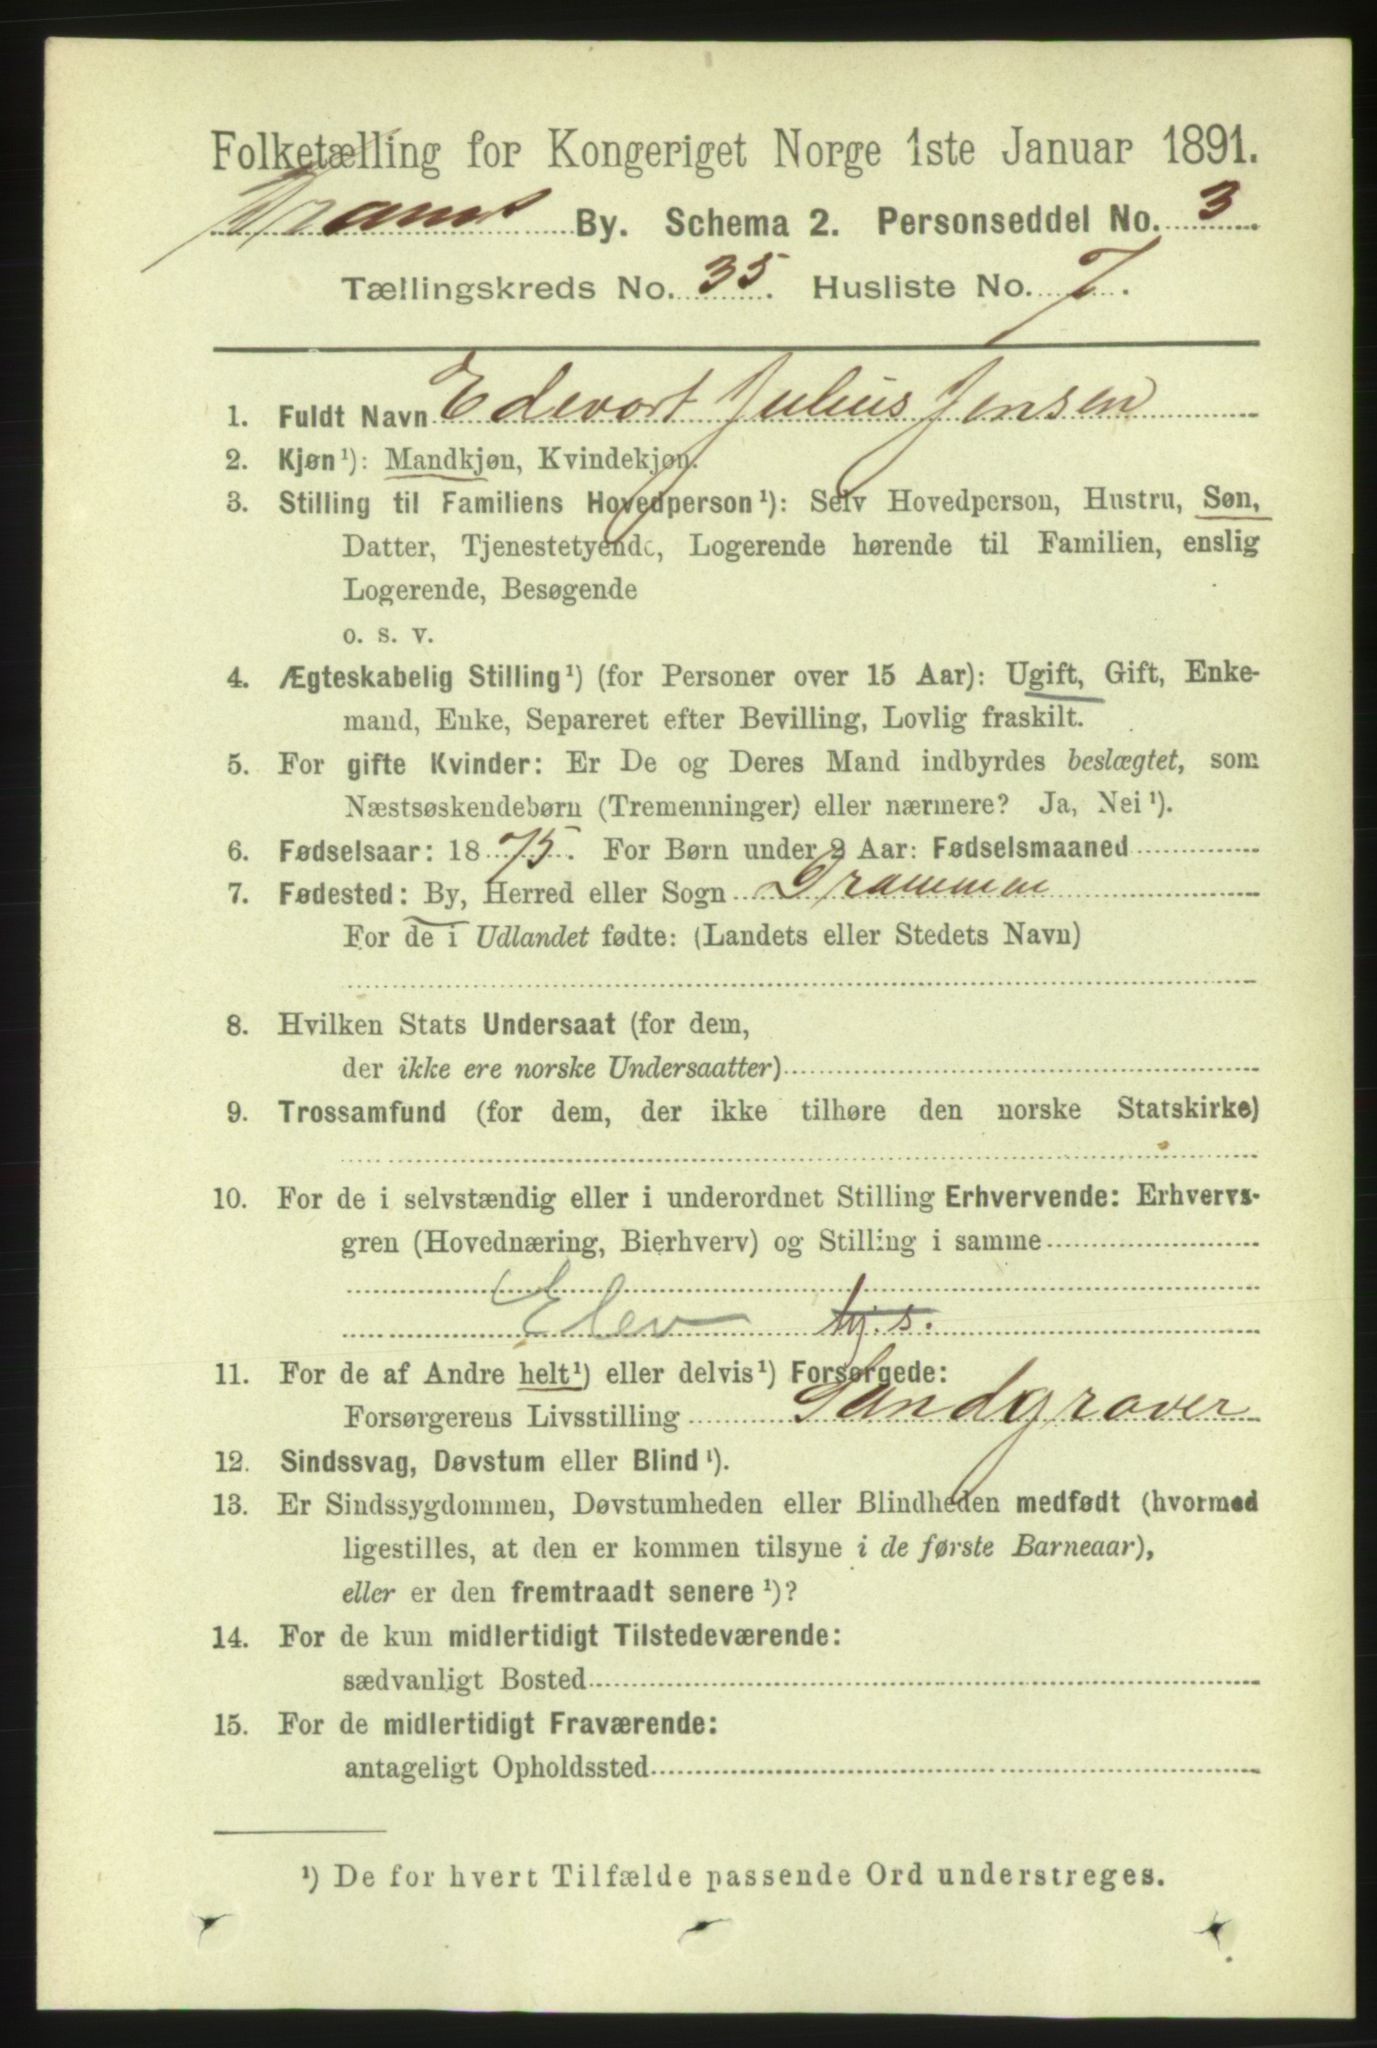 Folketælling for Kongeriget Norge 1ste Januar 1891.
Drams By. Schema 2. Personseddel No. 3
Tællingskreds No. 35. Husliste No. 7.
1. Fuldt Navn Edevart Julius Jensen
2. Kjøn¹): Mandkjøn, Kvindekjøn.
3. Stilling til Familiens Hovedperson¹): Selv Hovedperson, Hustru, Søn,
Datter, Tjenestetyende, Logerende hørende til Familien, enslig
Logerende, Besøgende
o. s. v.
4. Ægteskabelig Stilling¹) (for Personer over 15 Aar): Ugift, Gift, Enke-
mand, Enke, Separeret efter Bevilling, Lovlig fraskilt.
5. For gifte Kvinder: Er De og Deres Mand indbyrdes beslægtet, som
Næstsøskendebørn (Tremenninger) eller nærmere? Ja, Nei¹).
6. Fødselsaar: 1875. For Børn under 2 Aar: Fødselsmaaned
7. Fødested: By, Herred eller Sogn Drammen
For de i Udlandet fødte: (Landets eller Stedets Navn)
8. Hvilken Stats Undersaat (for dem,
der ikke ere norske Undersaatter)
9. Trossamfund (for dem, der ikke tilhøre den norske Statskirke)
10. For de i selvstændig eller i underordnet Stilling Erhvervende: Erhvervs-
gren (Hovednæring, Bierhverv) og Stilling i samme
Elev tj. s.
11. For de af Andre helt¹) eller delvis¹) Forsørgede:
Forsørgerens Livsstilling Sandgraver
12. Sindssvag, Døvstum eller Blind¹).
13. Er Sindssygdommen, Døvstumheden eller Blindheden medfødt (hvormed
ligestilles, at den er kommen tilsyne i de første Barneaar),
eller er den fremtraadt senere¹)?
14. For de kun midlertidigt Tilstedeværende:
sædvanligt Bosted
15. For de midlertidigt Fraværende:
antageligt Opholdssted
¹) De for hvert Tilfælde passende Ord understreges.